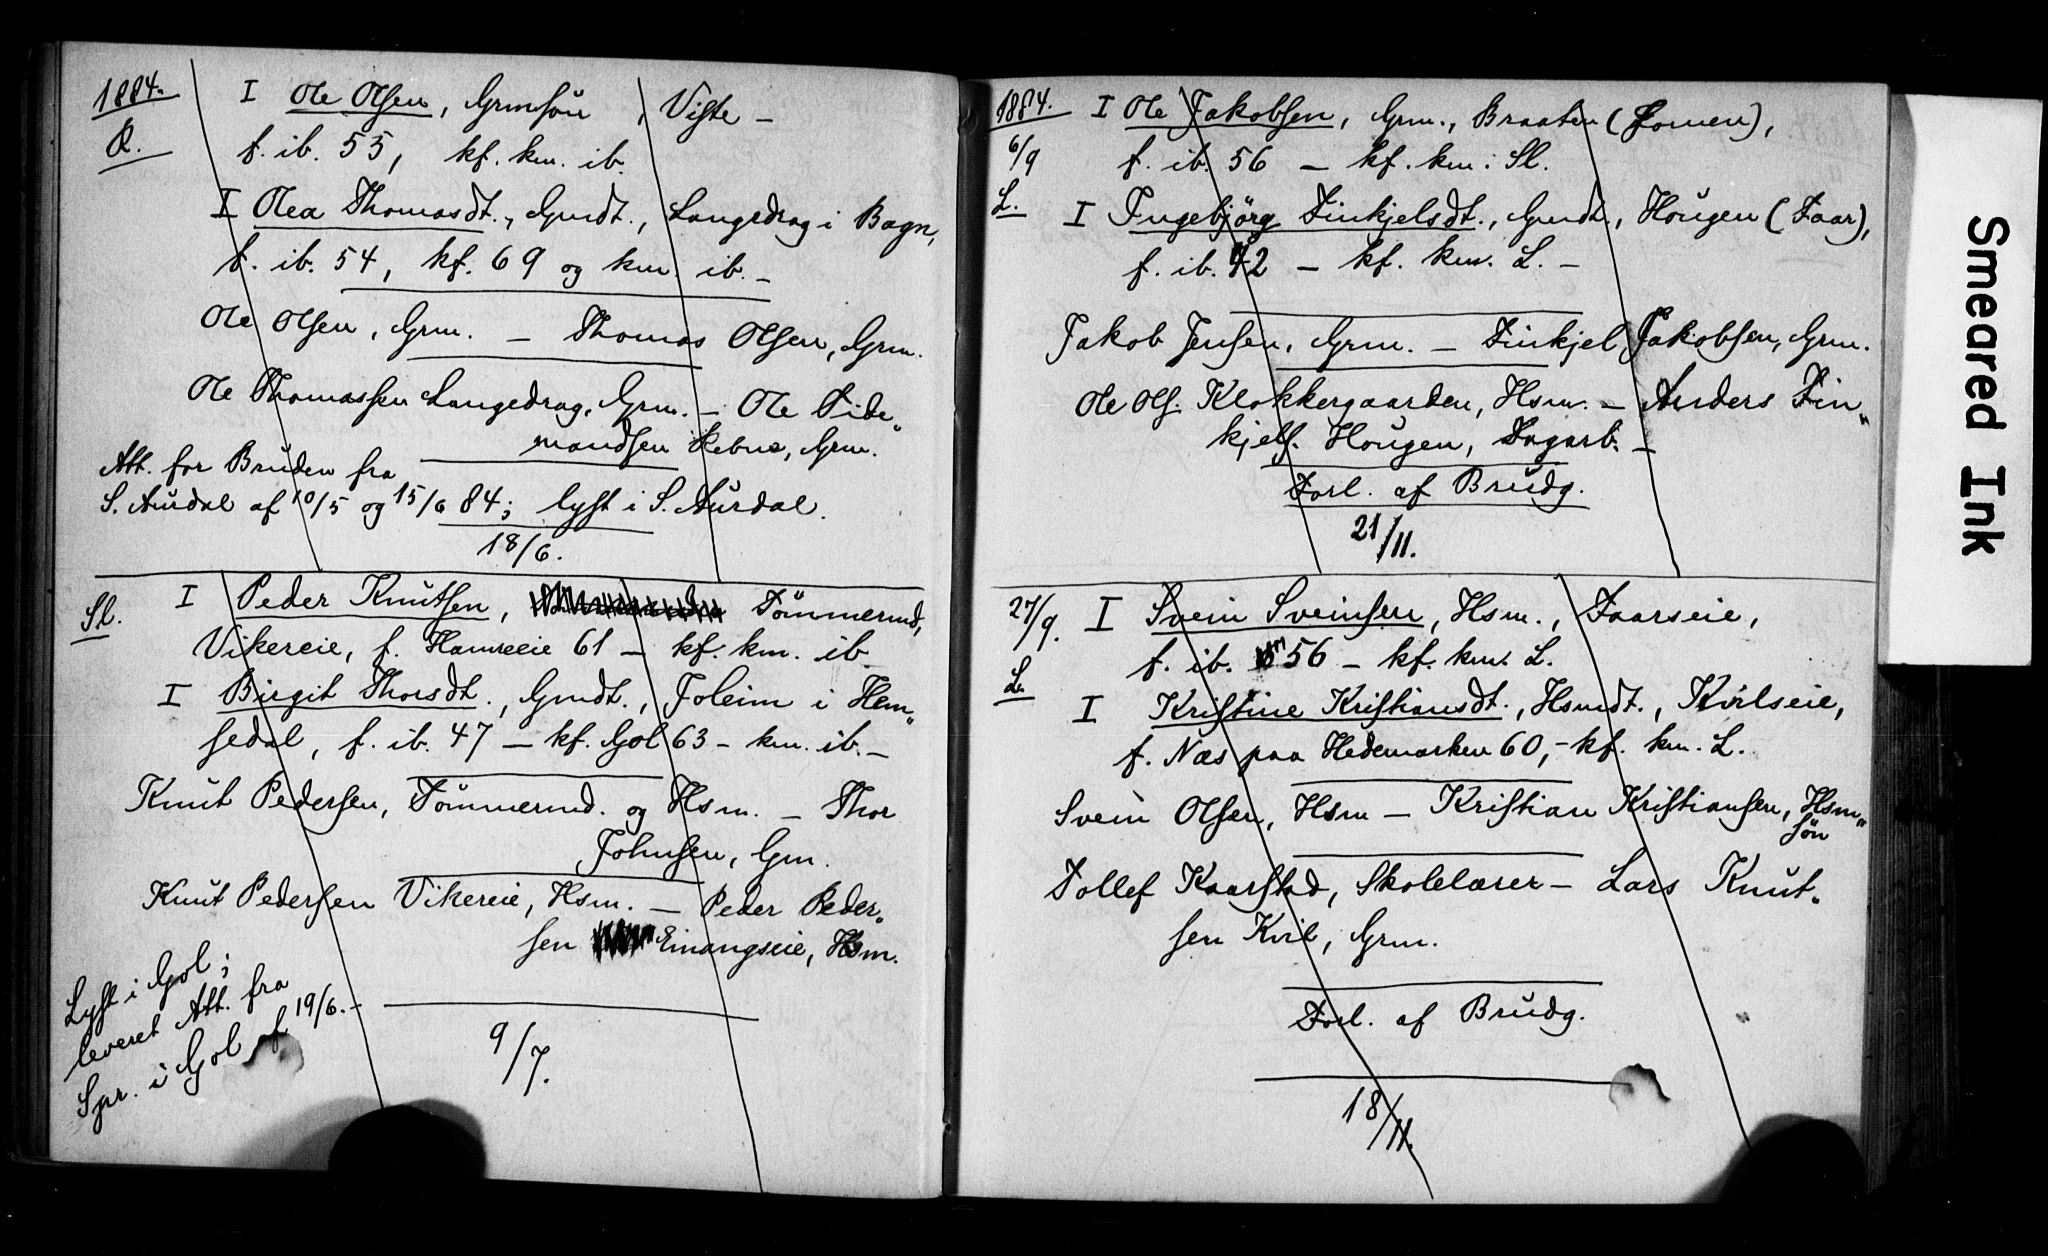 1884.
R.
I Ole Olsen, Grmsön, Viste –
f. ib. 55, kf. km. ib.
I Olea Thomasdt., Gmdt., Langedrag i Bagn,
f. ib. 54, kf. 69 og km. ib. –
Ole Olsen, Grm. – Thomas Olsen, Grm.
Ole Thomassen Langedrag, Grm. – Ole Tide„
mandsen Rebne, Grm.
Att. for Bruden fra
S. Aurdal af 10/5 og 15/6 84; lyst i S. Aurdal.
18/6.
Sl.
I Peder Knutsen, Tömmermd,
Vikereie, f. Hamreeie 61 – kf. km. ib.
I Birgit Thorsdt., Gmdt., Joleim i Hem„
sedal, f. ib. 47 – kf. Gol 63 – km. ib. –
Knut Pedersen, Tömmermd. og Hsm. – Thor
Johnsen, Gm.
Knut Pedersen Vikereie, Hsm. – Peder Peder„
sen Einangseie, Hsm.
Lyst i Gol;
leveret Att. fra
Spr. i Gol af 19/6. –
9/7.
1884.
6/9
L.
I Ole Jakobsen, Grm., Braaten (Fomen),
f. ib. 56 – kf. km. Sl.
I Ingebjörg Tinkjelsdt., Gmdt., Hougen (Faar),
f. ib. 42 – kf. km. L. –
Jakob Jensen, Grm. – Tinkjel Jakobsen, Grm.
Ole Ols. Klokkergaarden, Hsm. – Anders Tin„
kjels. Hougen, Dagarb. –
Forl. af Brudg.
21/11.
27/9.
L.
I Svein Sveinsen, Hsm., Faarseie,
f. ib. 56 – kf. km. L.
I Kristine Kristiansdt., Hsmdt., Kvilseie,
f. Næs paa Hedemarken 60, – kf. km. L.
Svein Olsen, Hsm – Kristian Kristiansen, Hsm„
sön
Tollef Kaarstad, Skolelærer – Lars Knut„
sen Kvil, Grm.
Forl. af Brudg.
18/11.
Smeared Ink